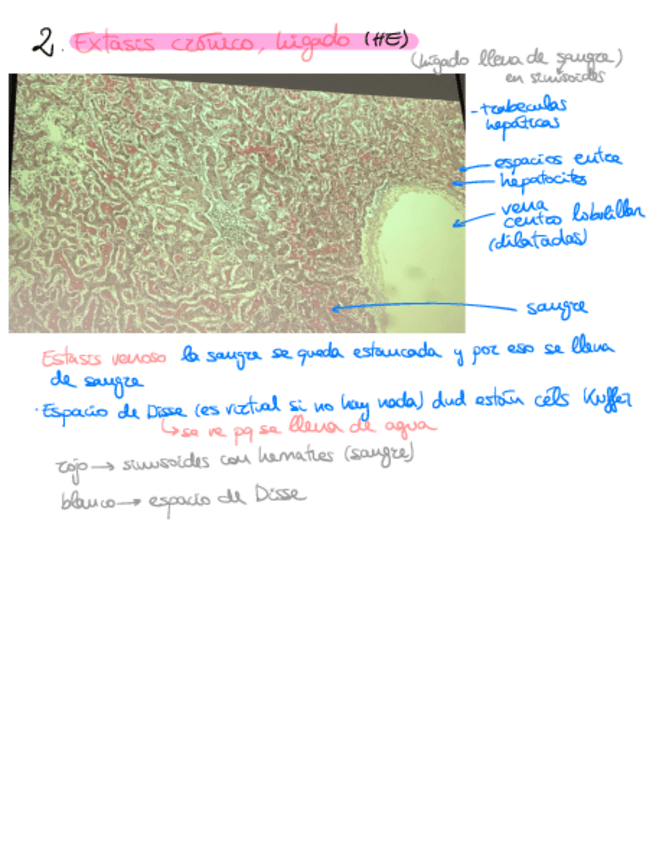 2. Extasis crónico, hígado (HE)
(hígado llena de sangre)
en sinusoides
- trabeculas
hepáticas
espacios entre
hepatocitos
vena
centro lobulillar
(dilatadas)
sangre
Estasis venoso la sangre se queda estancada y por eso se llena
de sangre
· Espacio de Disse (es virtual si no hay nada) dnd están céls Kuffer
↳ se ve pq se llena de agua
rojo → sinusoides con hematíes (sangre)
blanco → espacio de Disse